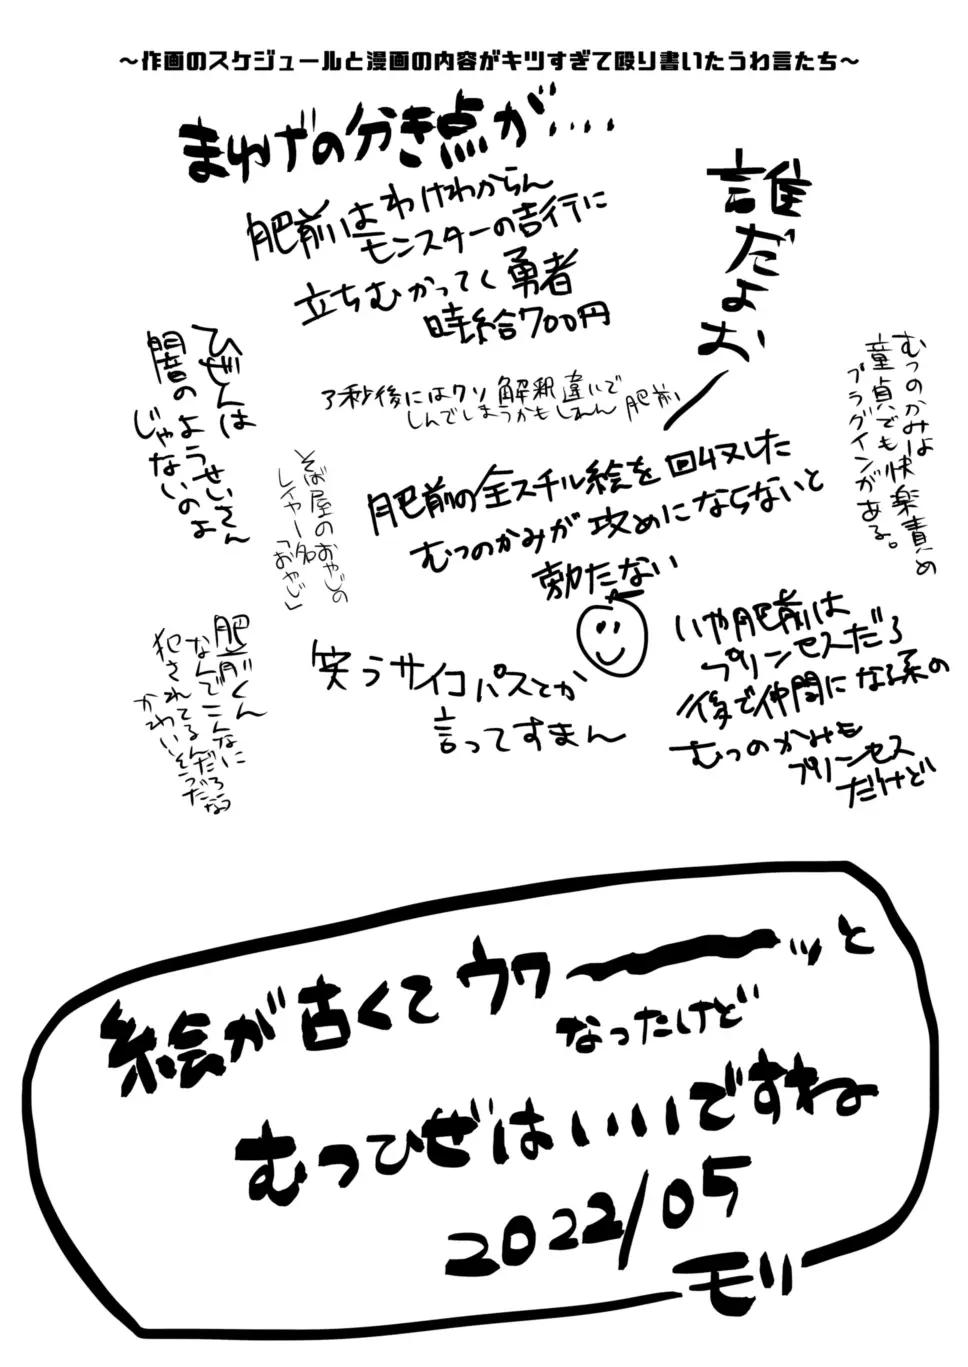 ～作画のスケジュールと漫画の内容がキツすぎて殴り書いたうわ言たち～
まゆげの分き点が....
誰だよお
肥前はわけわからん
モンスターの吉行に
立ちむかってく勇者
時給700円
ひぜんは
闇のようせいさん
じゃないのよ
3秒後にはクソ解釈違いで
しんでしまうかもしれん 肥前
むつのかみは
童貞でも快楽責め
プラグインがある。
そば屋のおやじの
レイヤー名
「おやじ」
肥前の全スチル絵を回収した
むつのかみが攻めにならないと
勃たない
肥前くん
なんでこんなに
犯されてるんだろう
かわいそうだな
笑うサイコパスとか
言ってすまん
いや肥前は
プリンセスだろ
後で仲間になる系の
むつのかみも
プリンセス
だけど
絵が古くてウワーーーッと
なったけど
むつひぜはいいですね
2022/05
モリ